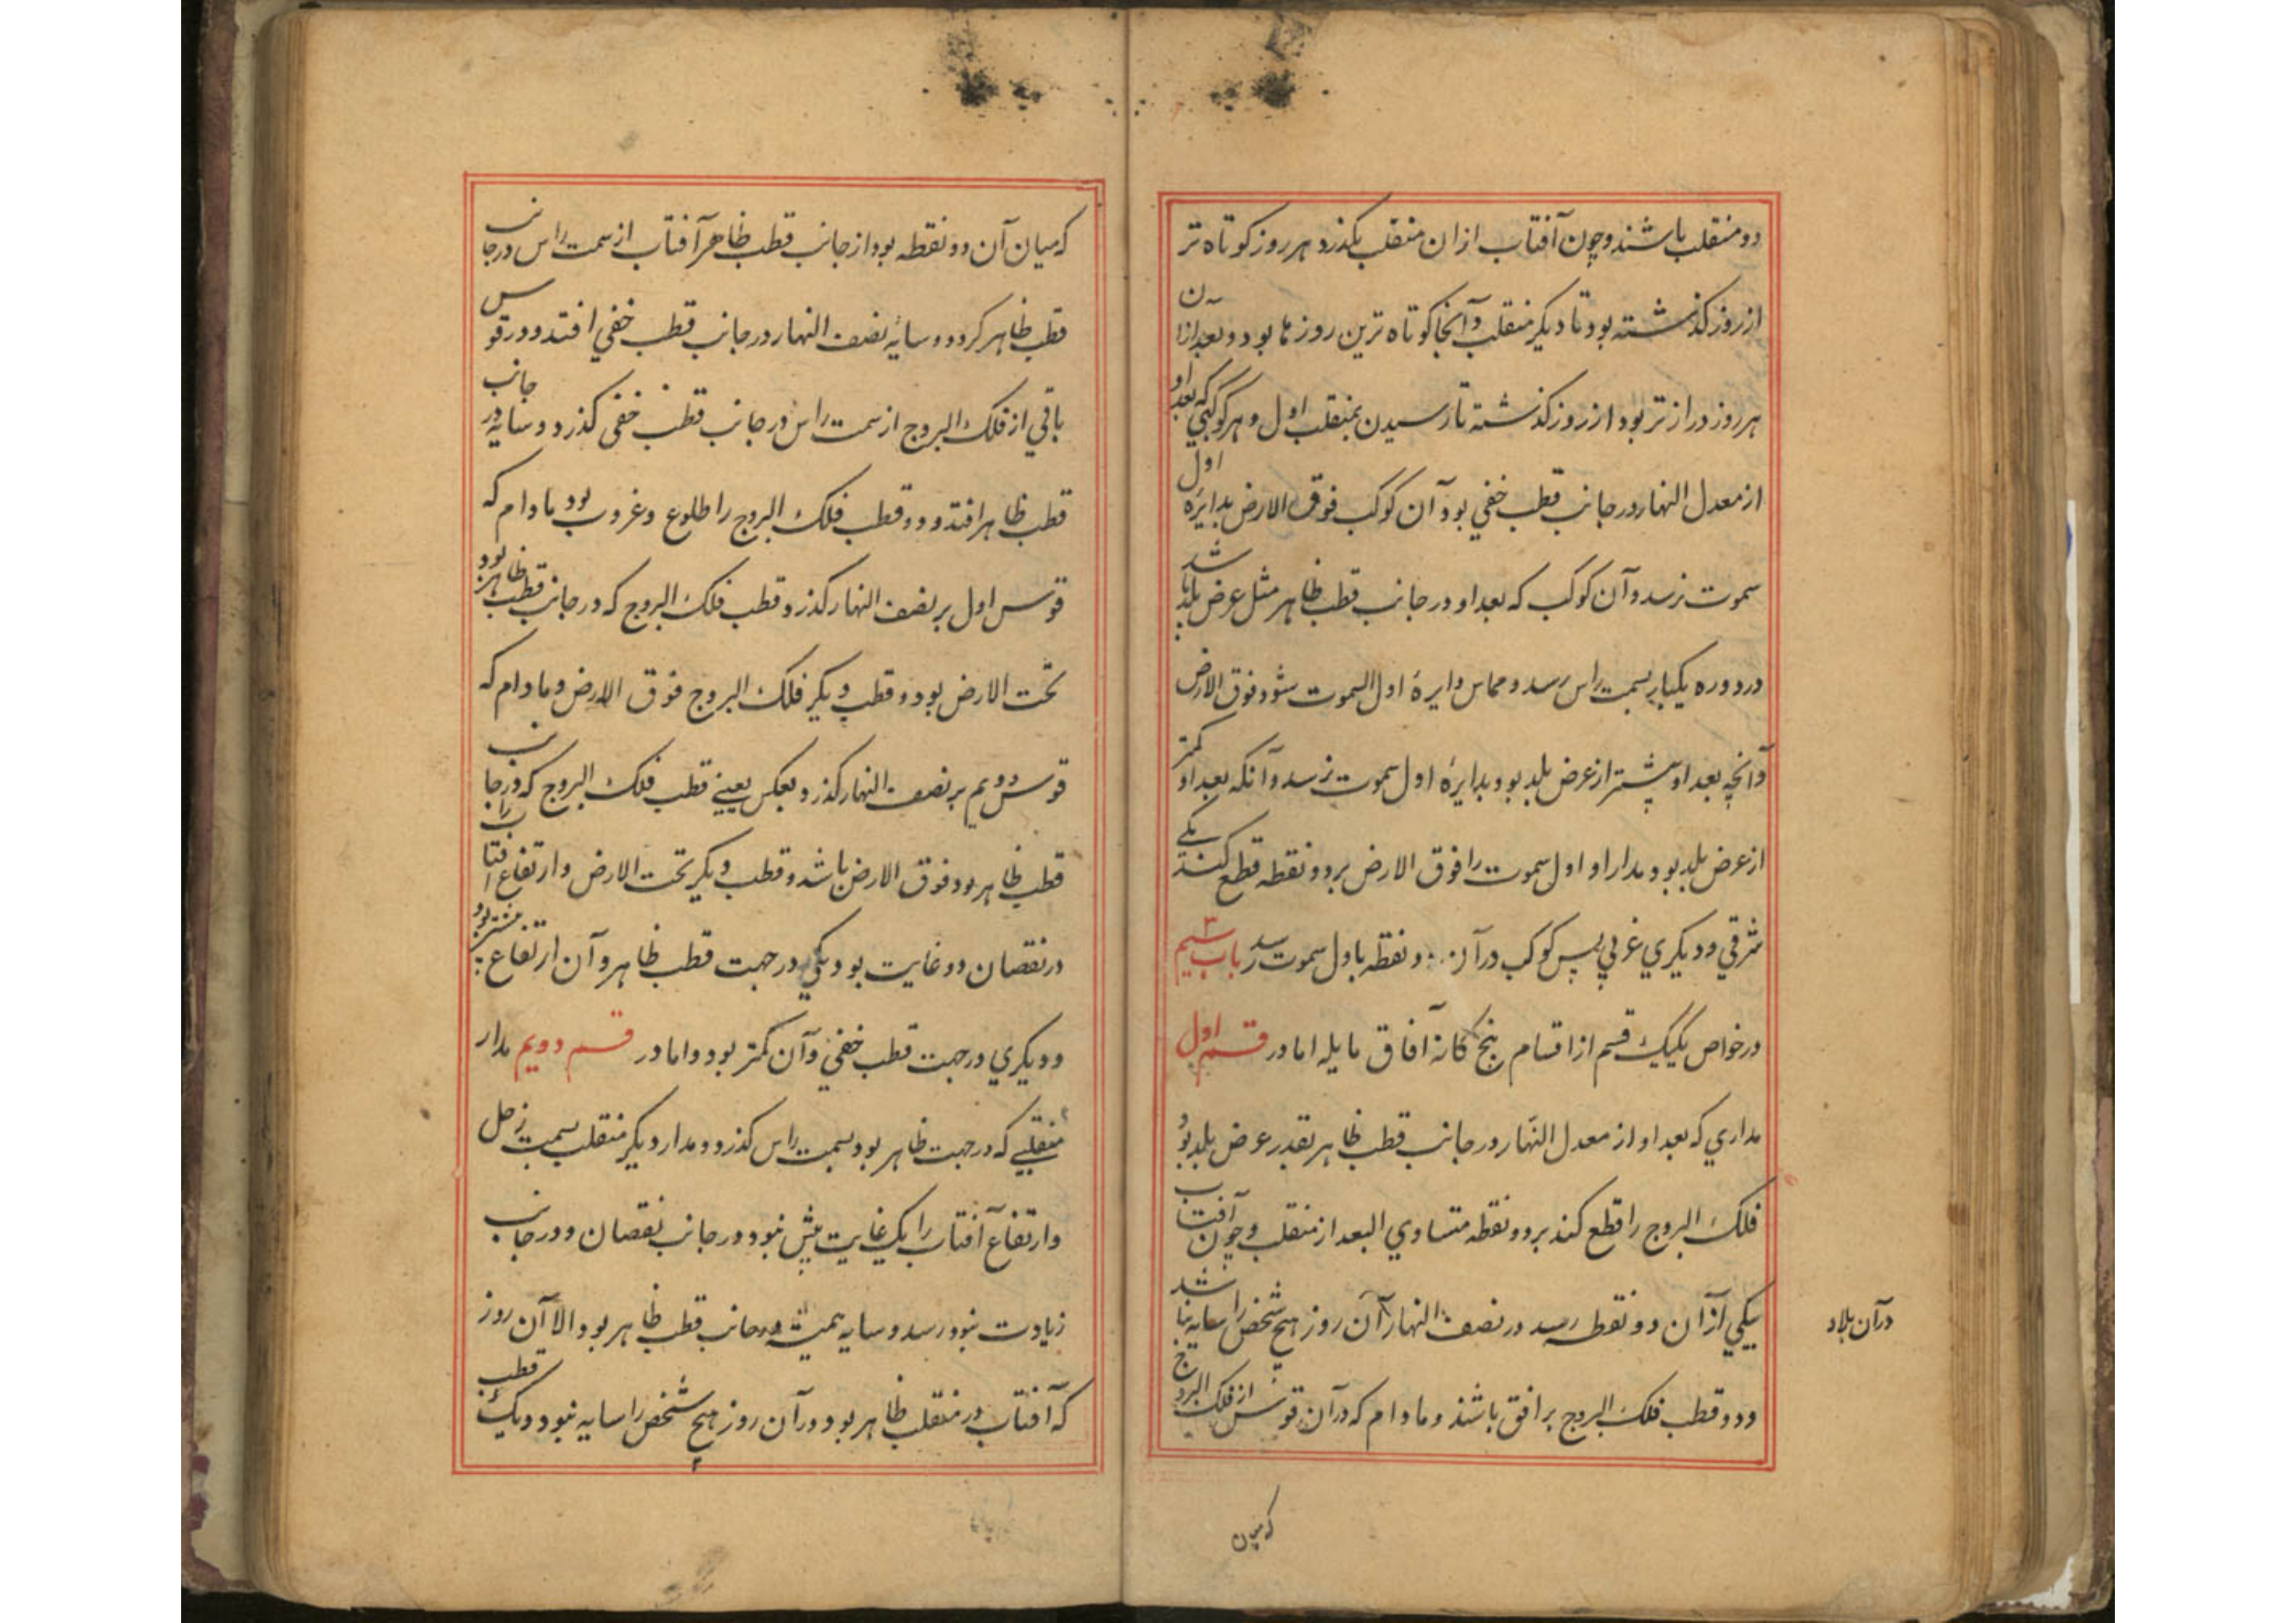 دو منقلب باشند و چون آفتاب ازان منقلب بکذرد هر روز کوتاه تر
از روز کذشته بود تا دیکر منقلب و آنجا کوتاه ترین روزها بود و بعد ازان
هر روز دراز تر بود از روز کذشته تا رسیدن بمنقلب اول و هر کوکبی که بعد او
از معدل النهار در جانب قطب خفي بود آن کوکب فوق الارض بدایره اول
سموت نرسد و آن کوکب که بعد او در جانب قطب ظاهر مثل عرض بلد باشد
در دوره یکبار بسمت راس رسد و مماس دایرهٔ اول السموت شود فوق الارض
و آنچه بعد او بیشتر از عرض بلد بود بدایرهٔ اول سموت نرسد و آنکه بعد او کمتر
از عرض بلد بود مدار او اول سموت را فوق الارض بر دو نقطه قطع کند یکے
شرقي و دیکري غربي پس کوکب در آن دو نقطه باول سموت رسد باب سیم ۳
در خواص یکیک قسم از اقسام پنج کانهٔ آفاق مایله اما در قسم اول
مداري که بعد او از معدل النهار در جانب قطب ظاهر بقدر عرض بلد بود
فلک البروج را قطع کند بر دو نقطه متساوي البعد از منقلب و چون آفتاب
بیکي از آن دو نقطه رسد در نصف النهار آن روز هیچ شخص را سایه نباشد
در آن بلاد
و دو قطب فلک البروج بر افق باشند و مادام که در آن قوس از فلک البروج
که میان
که میان آن دو نقطه بود از جانب قطب ظاهر آفتاب از سمت راس در جانب
قطب ظاهر کردد و سایهٔ نصف النهار در جانب قطب خفي افتد و در قوس
باقي از فلک البروج از سمت راس در جانب قطب خفي کذرد و سایه در جانب
قطب ظاهر افتد و دو قطب فلک البروج را طلوع و غروب بود مادام که
قوس اول بر نصف النهار کذرد قطب فلک البروج که در جانب قطب ظاهر بود
تحت الارض بود و قطب دیکر فلک البروج فوق الارض و مادام که
قوس دویم بر نصف النهار کذرد بعکس یعینے قطب فلک البروج که در جانب
قطب ظاهر بود فوق الارض باشد و قطب دیکر تحت الارض و ارتفاع آفتاب را
در نقصان دو غایت بود یکي در جهت قطب ظاهر و آن ارتفاع بیشتر بود
و دیکري در جهت قطب خفي و آن کمتر بود و اما در قسم دویم مدار
منقلبے که در جهت ظاهر بود بسمت راس کذرد و مدار دیکر منقلب بسمت رجل
و ارتفاع آفتاب را یک غایت بیش نبود در جانب نقصان و در جانب
زیادت نبود رسد و سایه همیشه در جانب قطب ظاهر بود الا آن روز
که آفتاب در منقلب ظاهر بود در آن روز هیچ شخص را سایه نبود و یک قطب